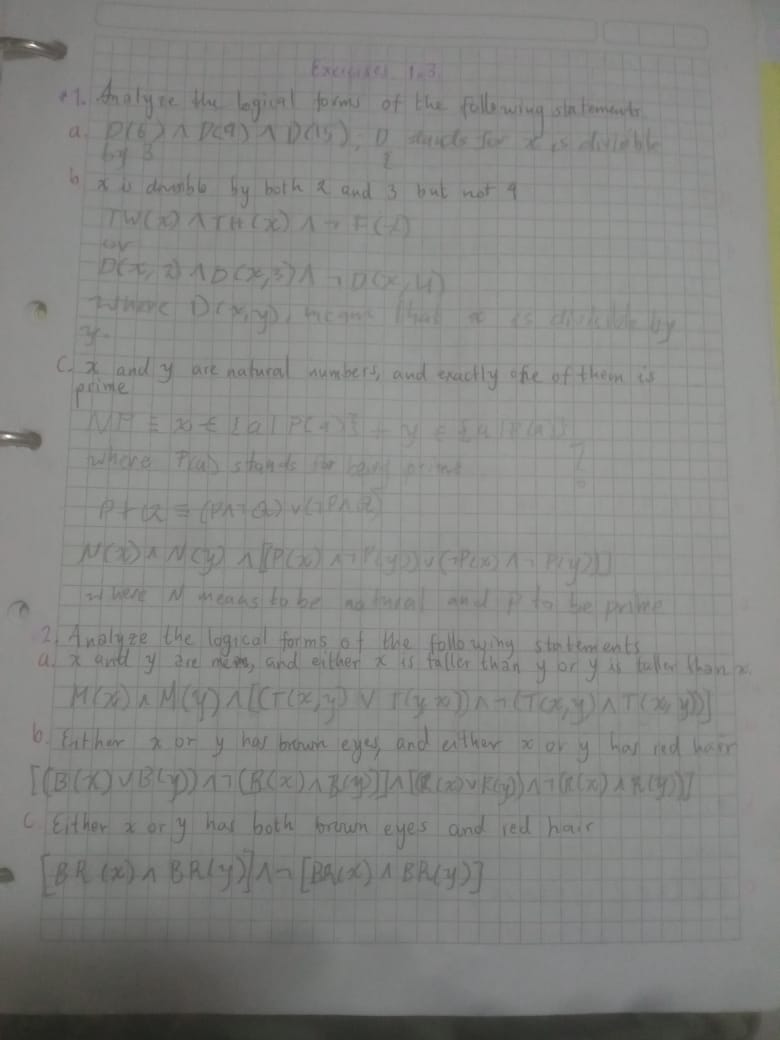 Exercises 1.3
*1. Analyze the logical forms of the following statements
a. D(6) ∧ D(9) ∧ D(15), D stands for x is divisible
by 3
b x is divisible by both 2 and 3 but not 4
TW(x) ∧ TH(x) ∧ ¬ F(x)
or
D(x, 2) ∧ D(x, 3) ∧ ¬ D(x, 4)
Where D(x, y), means that x is divisible by
y.
C. x and y are natural numbers, and exactly one of them is
prime
≡ x ∈ {a | P(a)} + y ∈ {a | P(a)}
where P(a) stands for being prime
P + Q ≡ (P ∧ ¬ Q) ∨ (¬ P ∧ Q)
N(x) ∧ N(y) ∧ [(P(x) ∧ ¬ P(y)) ∨ (¬ P(x) ∧ ¬ P(y))]
where N means to be natural and P to be prime
2. Analyze the logical forms of the following statements
a. x and y are men, and either x is taller than y or y is taller than x.
M(x) ∧ M(y) ∧ [(T(x, y) ∨ T(y, x)) ∧ ¬ (T(x, y) ∧ T(x, y))]
b. Either x or y has brown eyes, and either x or y has red hair
[(B(x) ∨ B(y)) ∧ ¬ (B(x) ∧ B(y))] ∧ [(R(x) ∨ R(y)) ∧ ¬ (R(x) ∧ R(y))]
C Either x or y has both brown eyes and red hair
[BR (x) ∧ BR(y)] ∧ ¬ [BR(x) ∧ BR(y)]